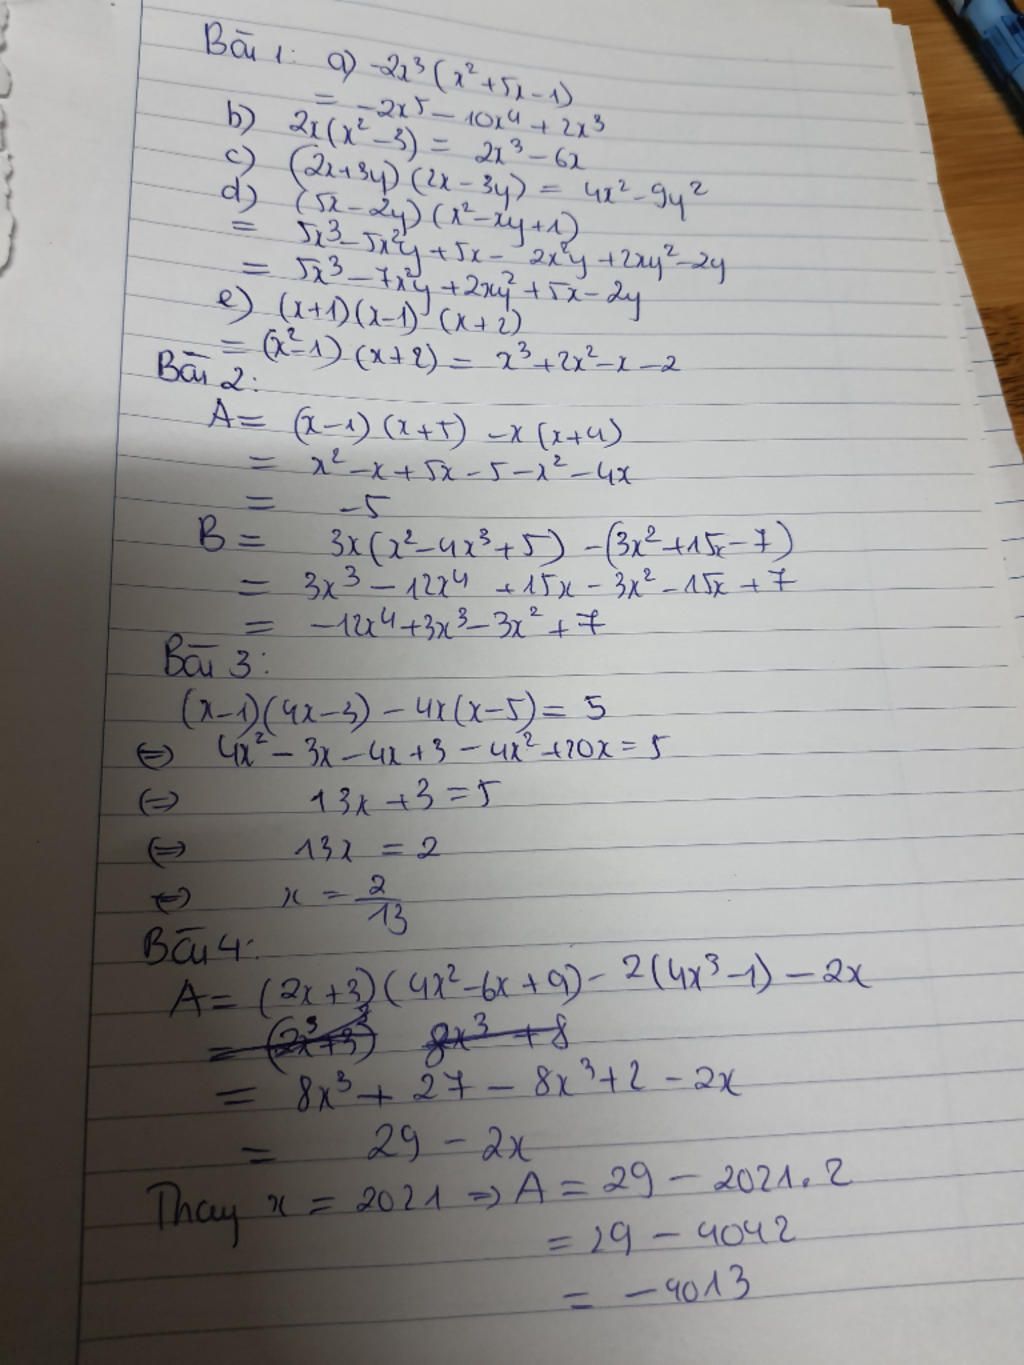 Bài 1: a) -2x³(x²+5x-1)
= -2x⁵ - 10x⁴ + 2x³
b) 2x(x²-3) = 2x³-6x
c) (2x+3y)(2x-3y) = 4x²-9y²
d) (5x-2y)(x²-xy+1)
= 5x³-5x²y+5x-2x²y+2xy²-2y
= 5x³-7x²y+2xy²+5x-2y
e) (x+1)(x-1)(x+2)
= (x²-1)(x+2) = x³+2x²-x-2
Bài 2:
A = (x-1)(x+5) -x(x+4)
= x²-x+5x-5-x²-4x
= -5
B = 3x(x²-4x³+5) -(3x²+15x-7)
= 3x³-12x⁴ +15x-3x²-15x+7
= -12x⁴+3x³-3x²+7
Bài 3:
(x-1)(4x-3)-4x(x-5)=5
⇔ 4x²-3x-4x+3-4x²+20x=5
⇔ 13x+3=5
⇔ 13x = 2
⇔ x = 2/13
Bài 4:
A = (2x+3)(4x²-6x+9)-2(4x³-1)-2x
= 8x³+27-8x³+2-2x
= 29-2x
Thay x = 2021 ⇒ A = 29-2021.2
= 29-4042
= -4013